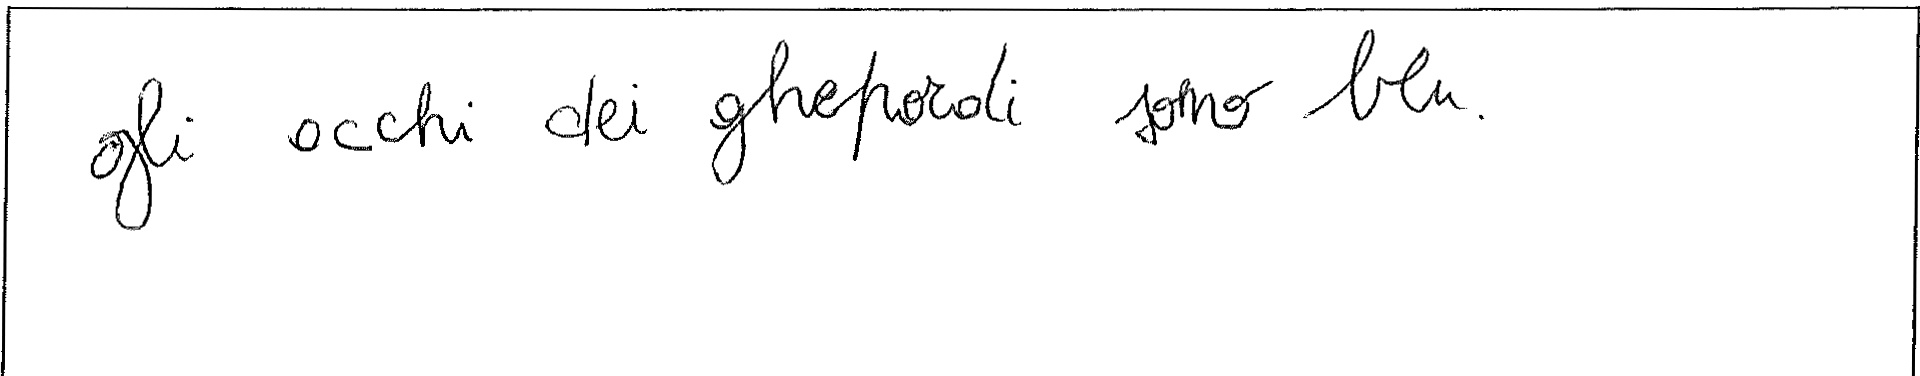 gli occhi dei ghepardi sono blu.